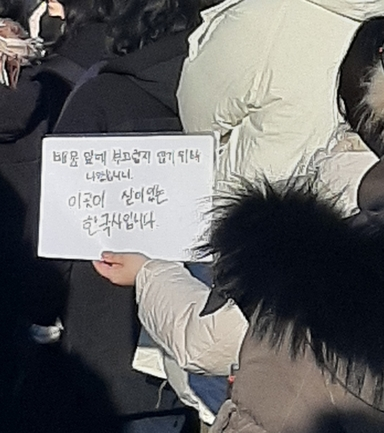 배움 앞에 부끄럽지 않기 위해
나왔습니다.
이곳이 살아있는
한국사입니다.